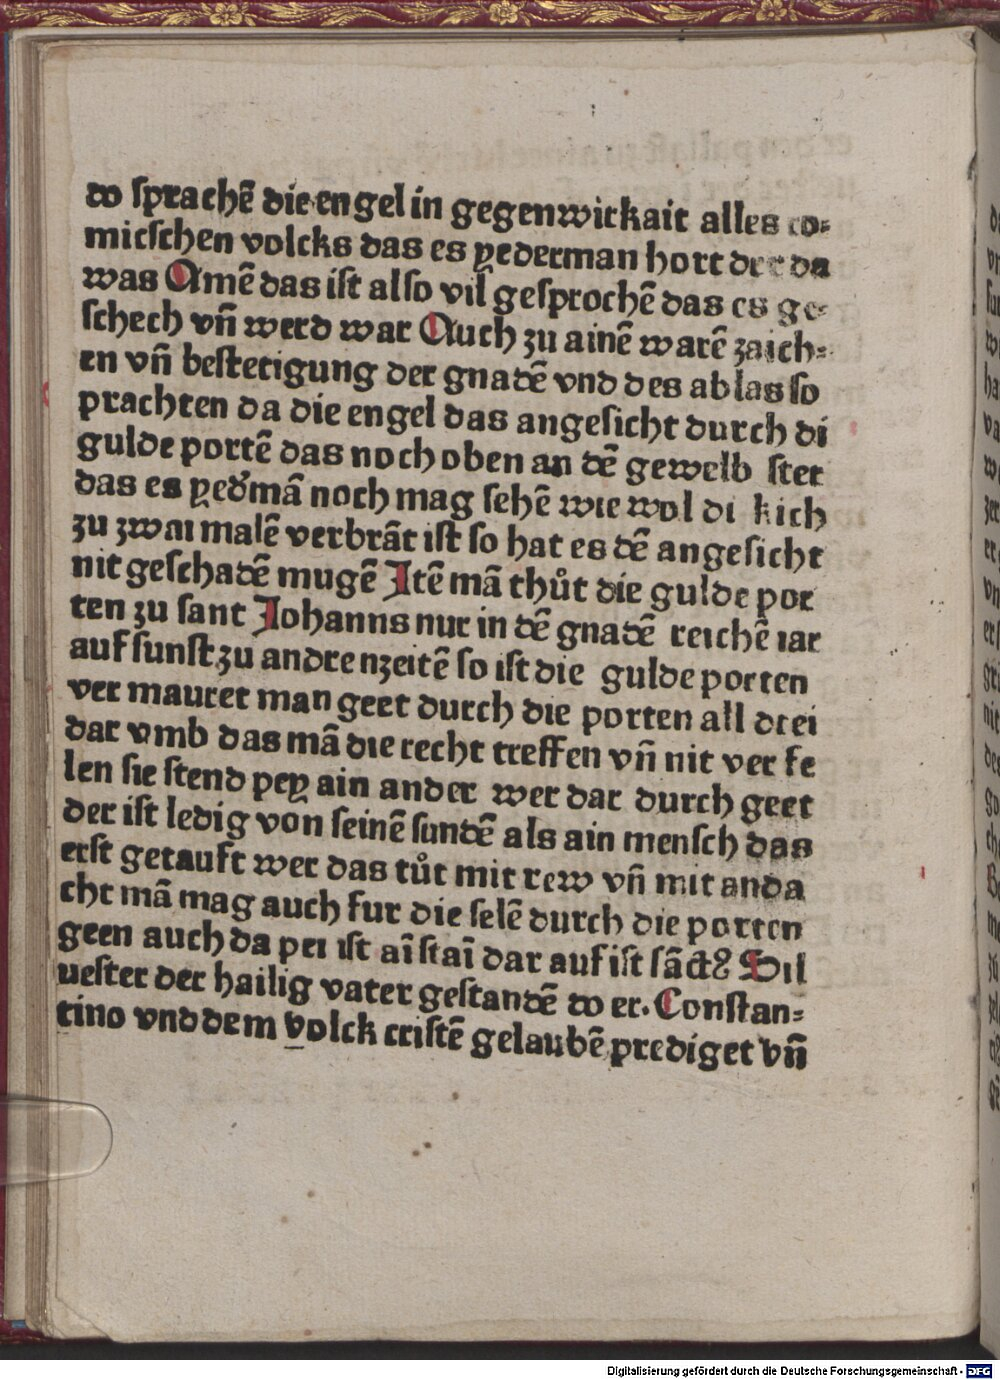 do sprachē die engel in gegenwickait alles ro-
micschen volcks das es yederman hort der da
was Amē das ist also vil gesprochē das es ge-
schech vn̄ werd war Auch zu ainē warē zaich-
en vn̄ bestetigung der gnadē vnd des ablas so
prachten da die engel das angesicht durch di
gulde portē das noch oben an dē gewelb stet
das es yedmā noch mag sehē wie wol di kich
zu zwai malē verbrāt ist so hat es dē angesicht
nit geschadē mugē Itē mā thůt die gulde por
ten zu sant Johanns nur in dē gnadē reichē iar
auf sunst zu andre nzeitē so ist die gulde porten
ver mauret man geet durch die porten all drei
dar vmb das mā die recht treffen vn̄ nit ver fe
len sie stend pey ain ander wer dar durch geet
der ist ledig von seinē sundē als ain mensch das
erst getauft wer das tůt mit rew vn̄ mit anda
cht mā mag auch fur die selē durch die porten
geen auch da pei ist aī staī dar auf ist sāctꝰ Sil
uester der hailig vater gestandē do er. Constan-
tino vnd dem volck cristē gelaubē prediget vn̄
Digitalisierung gefördert durch die Deutsche Forschungsgemeinschaft - DFG